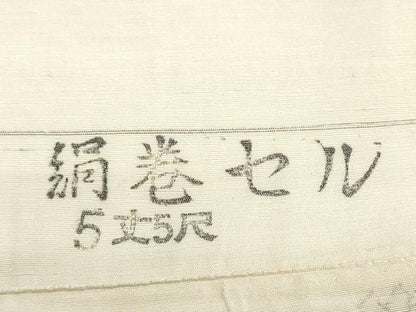 絹巻セル
5丈5尺